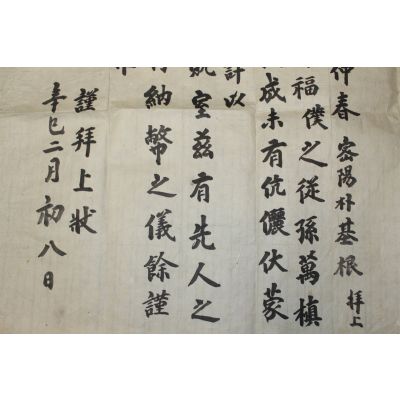 仲春 密陽朴基根 拜上
福僕之從孫萬槙
成未有伉儷伏蒙
計以
貺室玆有先人之
納幣之儀餘謹
謹拜上狀
辛巳二月初八日